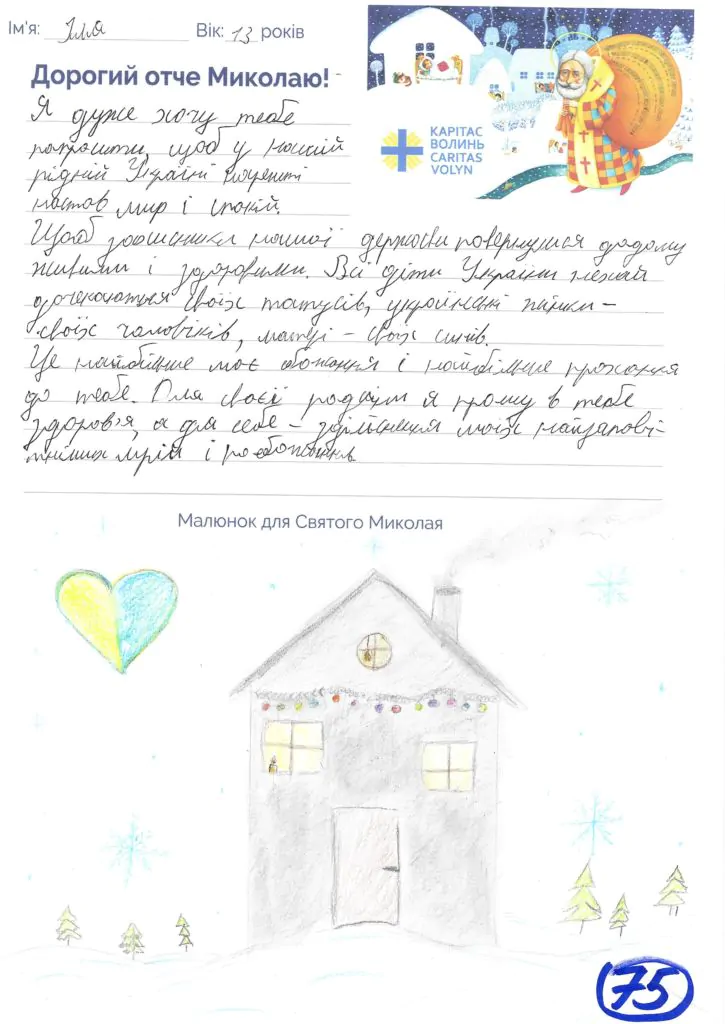 Ім'я: Ілля Вік: 13 років
Дорогий отче Миколаю!
КАРІТАС
ВОЛИНЬ
CARITAS
VOLYN
Я дуже хочу тебе
попросити, щоб у нашій
рідній Україні нарешті
настав мир і спокій.
Щоб захисники нашої держави повернулися додому
живими і здоровими. Всі діти України нехай
дочекаються своїх татусів, українські жінки –
своїх чоловіків, матері – своїх синів.
Це найбільше моє бажання і найбільше прохання
до тебе. Для своєї родини я прошу в тебе
здоров'я, а для себе – здійснення моїх найзапові-
тніших мрій і
Малюнок для Святого Миколая
75